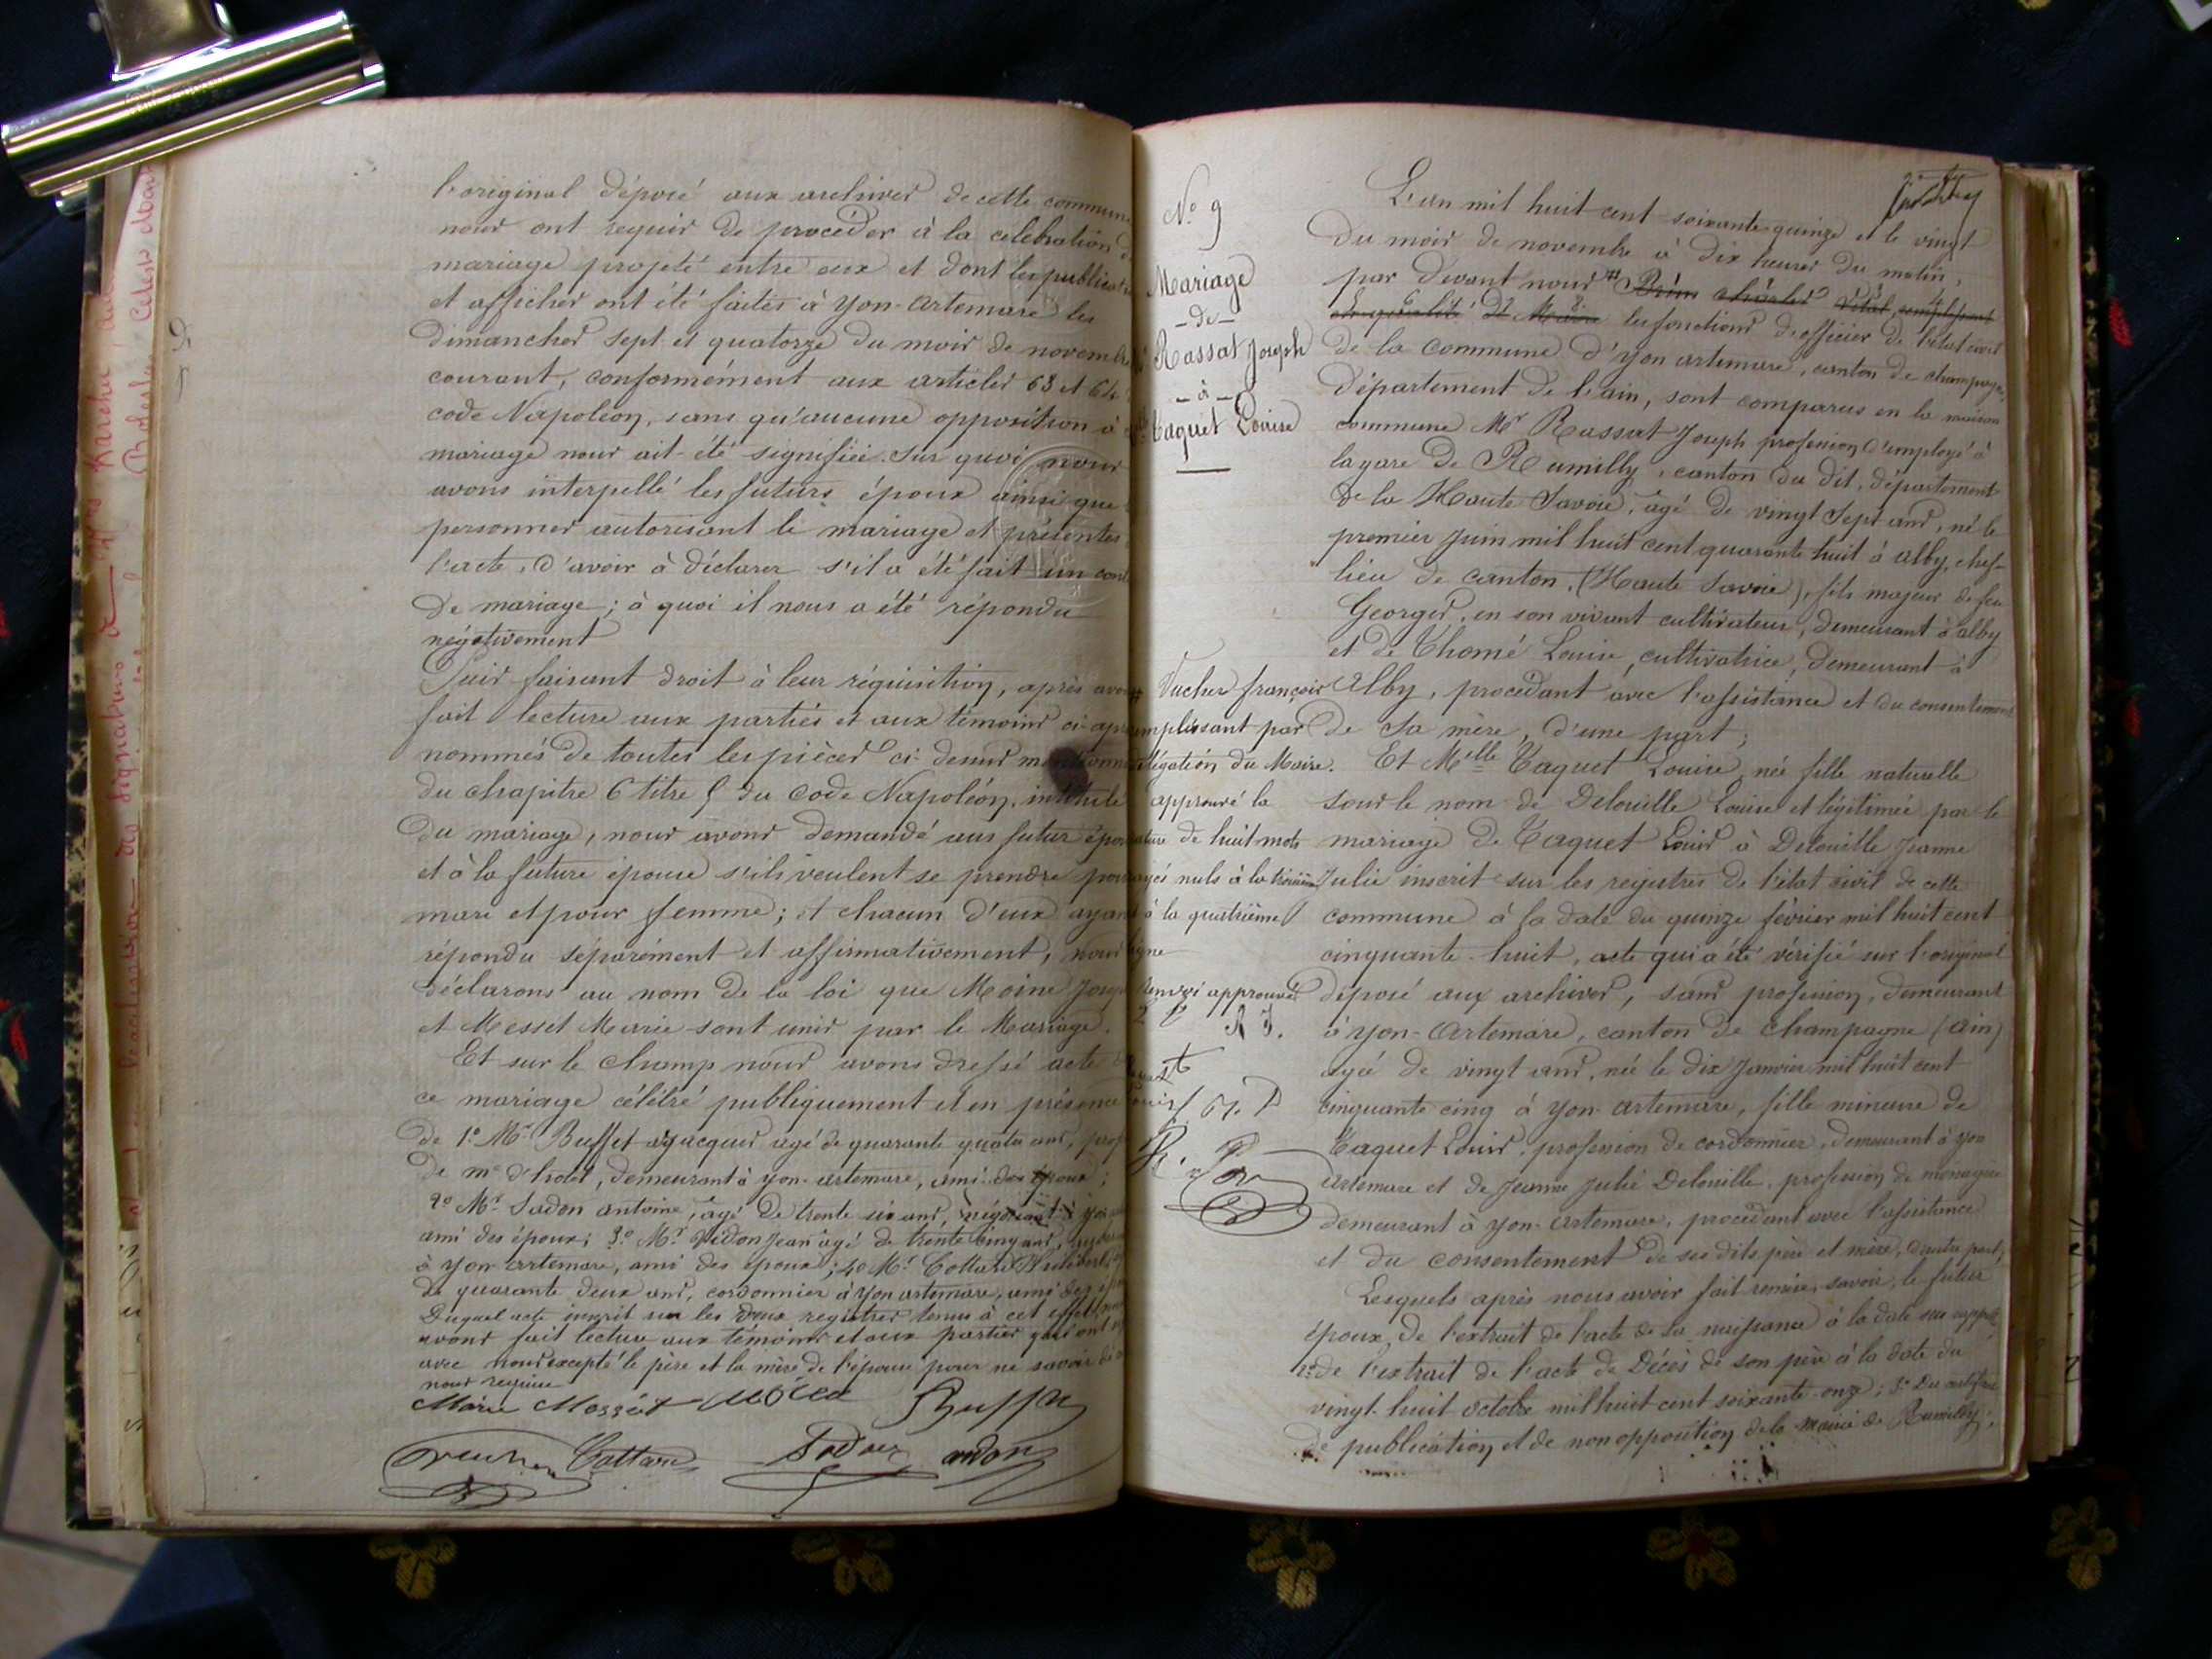 l'original déposé aux archives de cette commune
nous ont requis de procéder à la célébration d
mariage projeté entre eux et dont les publicati
et affiches ont été faites à Yon-Artemare les
dimanches sept et quatorze du mois de novembre
courant, conformément aux articles 63 et 64
code Napoléon, sans qu'aucune opposition à
mariage nous ait été signifiée. Sur quoi nous
avons interpellé les futurs époux ainsi que
personnes autorisant le mariage et présentes
l'acte, d'avoir à déclarer s'il a été fait un cont
de mariage; à quoi il nous a été répondu
négativement
Puis faisant droit à leur réquisition, après avoir
fait lecture aux parties et aux témoins ci-apr
nommés de toutes les pièces ci-dessus mentionn
du chapitre 6 titre 5 du Code Napoléon, intitulé
du mariage, nous avons demandé aus futur épou
et à la future épouse s'ils veulent se prendre pour
mari et pour femme; et chacun d'eux ayant
répondu séparément et affirmativement, nous
déclarons au nom de la loi que Moine Josep
et Messet Marie sont unis par le Mariage.
Et sur le champ nous avons dressé acte
ce mariage célébré publiquement et en présence
de 1º Mr Buffet Jacques agé de quarante quatre ans, prof
de me d'hotel, demeurant à yon-artemare, ami des époux;
2º Mr Sadon antoine, agé de trente six ans, négociant à yon
ami des époux; 3º Mr Vidon Jean agé de trente cinq ans,
à yon artemare, ami des époux; 4º Mr Cottard
de quarante deux ans, cordonnier à Yon artemare, ami des ép
Duquel acte inscrit sur les deux registres tenus à cet effet nous
avons fait lecture aux témoins et aux parties qui ont
avec nous excepté le père et la mère de l'épouse pour ne savoir de
nous requise
Marie Messet Moine Buffet
Cottard Sadon
Nº 9
Mariage
- de -
Rassat Joseph
- à -
Taquet Louise
L'an mil huit cent soixante-quinze et le vingt
du mois de novembre à dix heures du matin,
par devant nous # Brün Charles Vital remplissant
les fonctions d'officier de l'état civil
de la commune d'yon artemare, canton de champagne,
département de l'ain, sont comparus en la maison
commune Mr Rassat Joseph profession d'employé à
la gare de Rumilly, canton du dit, département
de la Haute Savoie, agé de vingt sept ans, né le
premier Juin mil huit cent quarante huit à alby, chef-
lieu de canton, (Haute Savoie), fils majeur de feu
Georges, en son vivant cultivateur, demeurant à alby
et de Thomé Louise, cultivatrice, demeurant à
Alby, procédant avec l'assistance et du consentement
de sa mère, d'une part;
Et Melle Taquet Louise née fille naturelle
sous le nom de Delouille Louise et légitimée par le
mariage de Taquet Louis à Delouille Jeanne
Julie inscrit sur les registres de l'état civil de cette
commune à la date du quinze février mil huit cent
cinquante-huit, acte qui a été vérifié sur l'original
déposé aux archives, sans profession, demeurant
à yon-Artemare, canton de Champagne (ain)
agée de vingt ans, née le dix Janvier mil huit cent
cinquante cinq à yon-artemare, fille mineure de
Taquet Louis, profession de cordonnier, demeurant à yon
artemare et de Jeanne Julie Delouille, profession de ménagère
demeurant à yon-artemare, procédant avec l'assistance
et du consentement de ses dits père et mère, d'autre part;
Lesquels après nous avoir fait remise, savoir, le futur
époux, de l'extrait de l'acte de sa naissance à la date sus rappelé
2º de l'extrait de l'acte de décès de son père à la date du
vingt-huit octobre mil huit cent soixante-onze; 3º Du certificat
de publication et de non opposition de la mairie de Rumilly;
# Vucher françois
remplissant par
délégation du Maire.
approuvé la
rature de huit mots
rayés nuls à la troisième
à la quatrième
ligne
Renvoi approuvé
R J.